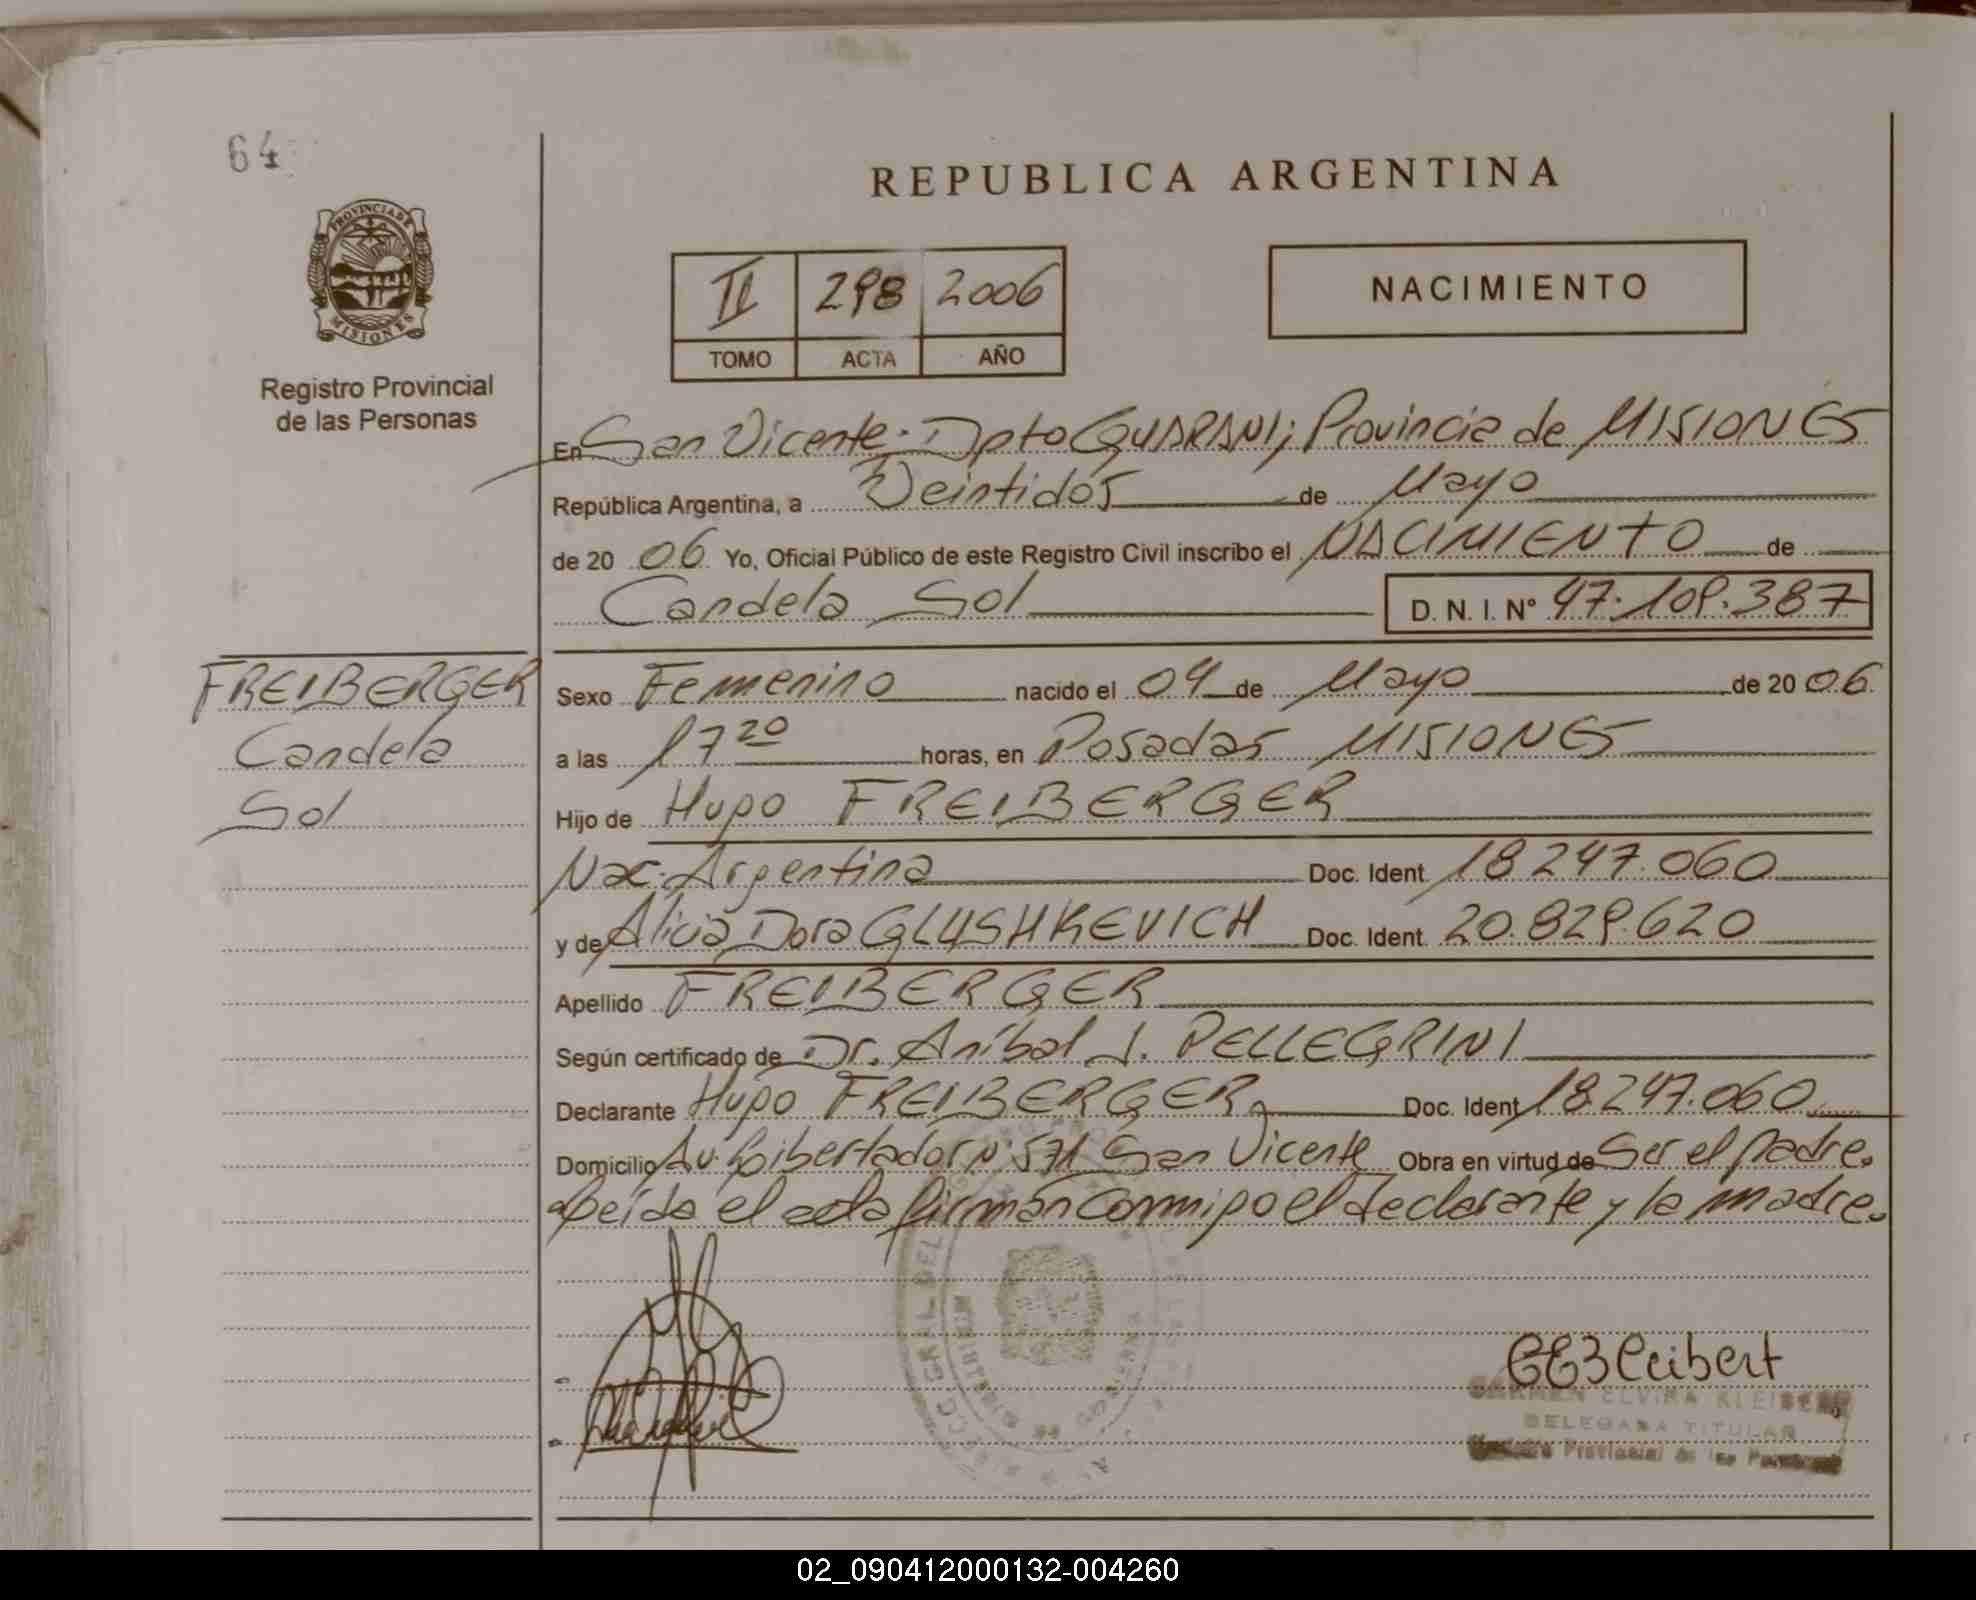 64
PROVINCIA DE
MISIONES
Registro Provincial
de las Personas
REPUBLICA ARGENTINA
II 298 2006
TOMO ACTA AÑO
NACIMIENTO
En San Vicente. Dpto GUARANI; Provincia de MISIONES
República Argentina, a Veintidos de Mayo
de 20 06 Yo, Oficial Público de este Registro Civil inscribo el NACIMIENTO de
Candela Sol D. N. I. Nº 47.109.387
FREIBERGER
Candela
Sol
Sexo Femenino nacido el 04 de Mayo de 20 06.
a las 17 20 horas, en Posadas MISIONES
Hijo de Hugo FREIBERGER
Nac. Argentina Doc. Ident. 18.247.060
y de Alicia Dora GLUSHKEVICH Doc. Ident. 20.829.620
Apellido FREIBERGER
Según certificado de Dr. Aníbal J. PELLEGRINI
Declarante Hugo FREIBERGER Doc. Ident. 18.247.060
Domicilio Av. Libertador Nº 571 San Vicente Obra en virtud de Ser el padre.
Leída el acta firman conmigo el declarante y la madre.
CARMEN ELVIRA KLEIBERT
DELEGADA TITULAR
Registro Provincial de las Personas
02_090412000132-004260